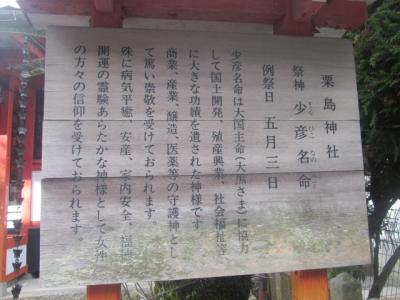 粟島神社
祭神 少彦名命
すくなひこなのみこと
例祭日 五月三日
少彦名命は大国主命(大黒さま)に協力
して国土開発、殖産興業、社会福祉等
に大きな功績を遺された神様です
商業、産業、醸造、医薬等の守護神とし
て篤い崇敬を受けております
殊に病気平癒、安産、家内安全、福徳
開運の霊験あらたかな神様として女性
の方々の信仰を受けておられます。